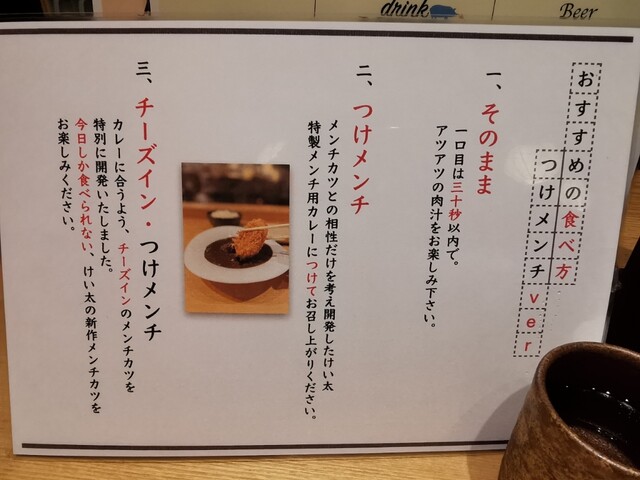 drink
Beer
おすすめの食べ方
つけメンチver
一、そのまま
一口目は三十秒以内で。
アツアツの肉汁をお楽しみ下さい。
二、つけメンチ
メンチカツとの相性だけを考え開発したけい太
特製メンチ用カレーにつけてお召し上がりください。
三、チーズイン・つけメンチ
カレーに合うよう、チーズインのメンチカツを
特別に開発いたしました。
今日しか食べられない、けい太の新作メンチカツを
お楽しみください。